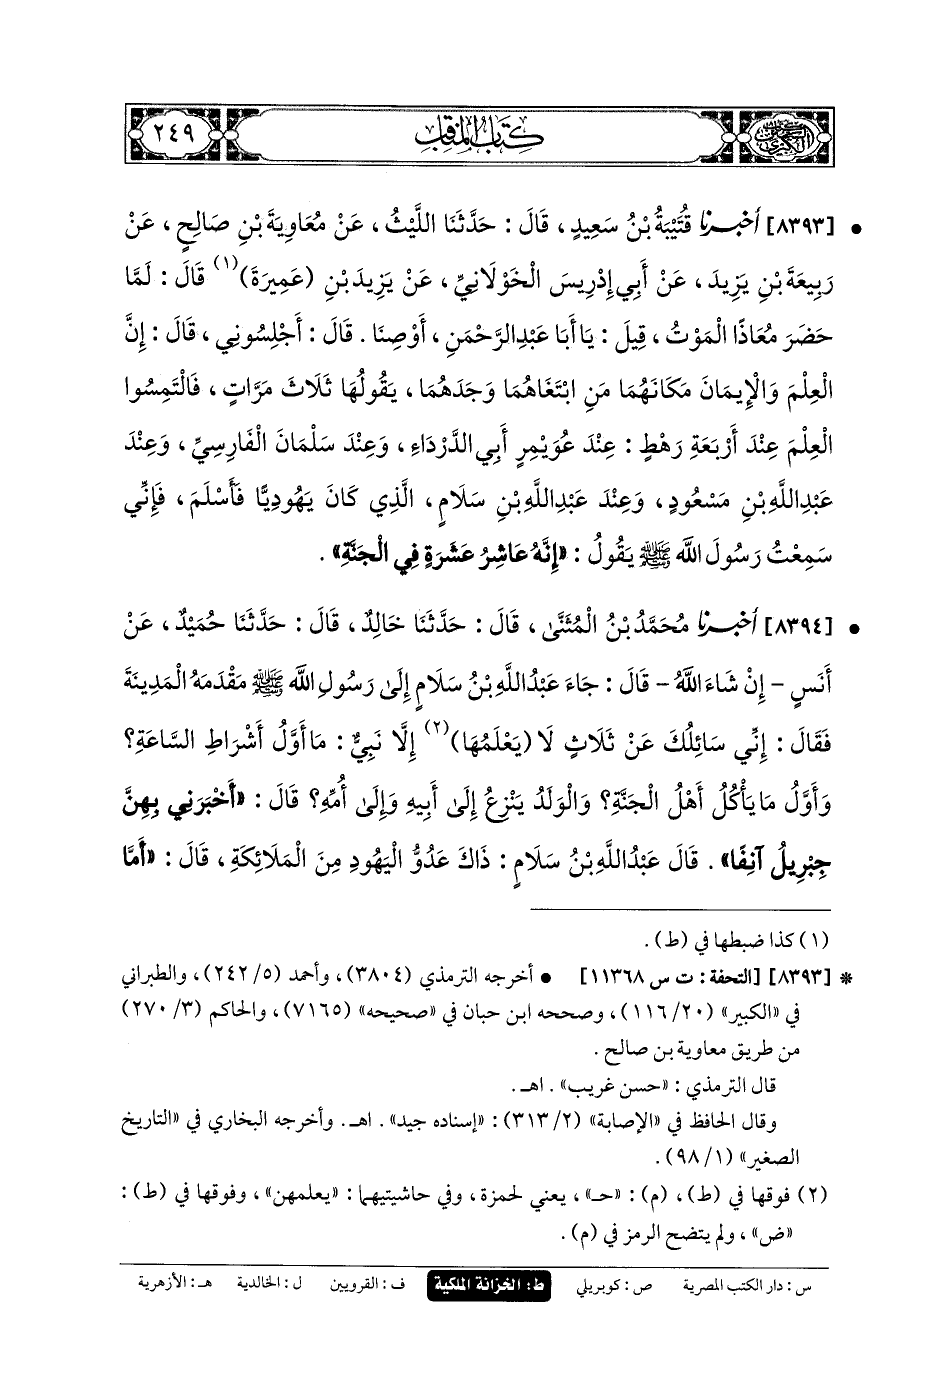 كتاب المناقب
٢٤٩
• [٨٣٩٣] أخبرنا قُتَيْبَةُ بْنُ سَعِيدٍ ، قَالَ : حَدَّثَنَا اللَّيْثُ ، عَنْ مُعَاوِيَةَ بْنِ صَالِحٍ ، عَنْ
رَبِيعَةَ بْنِ يَزِيدَ ، عَنْ أَبِي إِدْرِيسَ الْخَوْلَانِيِّ ، عَنْ يَزِيدَ بْنِ (عَمِيرَةَ)(١) قَالَ : لَمَّا
حَضَرَ مُعَاذًا الْمَوْتُ ، قِيلَ : يَا أَبَا عَبْدِ الرَّحْمَنِ ، أَوْصِنَا . قَالَ : أَجْلِسُونِي ، قَالَ : إِنَّ
الْعِلْمَ وَالْإِيمَانَ مَكَانَهُمَا مَنِ ابْتَغَاهُمَا وَجَدَهُمَا ، يَقُولُهَا ثَلَاثَ مَرَّاتٍ ، فَالْتَمِسُوا
الْعِلْمَ عِنْدَ أَرْبَعَةِ رَهْطٍ : عِنْدَ عُوَيْمِرٍ أَبِي الدَّرْدَاءِ ، وَعِنْدَ سَلْمَانَ الْفَارِسِيِّ ، وَعِنْدَ
عَبْدِ اللَّهِ بْنِ مَسْعُودٍ ، وَعِنْدَ عَبْدِ اللَّهِ بْنِ سَلَامٍ ، الَّذِي كَانَ يَهُودِيًّا فَأَسْلَمَ ، فَإِنِّي
سَمِعْتُ رَسُولَ اللَّهِ ﷺ يَقُولُ : «إِنَّهُ عَاشِرُ عَشَرَةٍ فِي الْجَنَّةِ» .
• [٨٣٩٤] أخبرنا مُحَمَّدُ بْنُ الْمُثَنَّى ، قَالَ : حَدَّثَنَا خَالِدٌ ، قَالَ : حَدَّثَنَا حُمَيْدٌ ، عَنْ
أَنَسٍ - إِنْ شَاءَ اللَّهُ - قَالَ : جَاءَ عَبْدُ اللَّهِ بْنُ سَلَامٍ إِلَى رَسُولِ اللَّهِ ﷺ مَقْدَمَهُ الْمَدِينَةَ
فَقَالَ : إِنِّي سَائِلُكَ عَنْ ثَلَاثٍ لَا (يَعْلَمُهَا)(٢) إِلَّا نَبِيٌّ : مَا أَوَّلُ أَشْرَاطِ السَّاعَةِ؟
وَأَوَّلُ مَا يَأْكُلُ أَهْلُ الْجَنَّةِ؟ وَالْوَلَدُ يَنْزِعُ إِلَى أَبِيهِ وَإِلَى أُمِّهِ؟ قَالَ : «أَخْبَرَنِي بِهِنَّ
جِبْرِيلُ آنِفًا» . قَالَ عَبْدُ اللَّهِ بْنُ سَلَامٍ : ذَاكَ عَدُوُّ الْيَهُودِ مِنَ الْمَلَائِكَةِ ، قَالَ : «أَمَّا
(١) كذا ضبطها في (ط) .
* [٨٣٩٣] [التحفة : ت س ١١٣٦٨] • أخرجه الترمذي (٣٨٠٤) ، وأحمد (٢٤٢/٥) ، والطبراني
في «الكبير» (١١٦/٢٠) ، وصححه ابن حبان في «صحيحه» (٧١٦٥) ، والحاكم (٢٧٠/٣)
من طريق معاوية بن صالح .
قال الترمذي : «حسن غريب» . اهـ .
وقال الحافظ في «الإصابة» (٣١٣/٢) : «إسناده جيد» . اهـ . وأخرجه البخاري في «التاريخ
الصغير» (٩٨/١) .
(٢) فوقها في (ط) ، (م) : «حـ» ، يعني لحمزة ، وفي حاشيتيهما : «يعلمهن» ، وفوقها في (ط) :
«ض» ، ولم يتضح الرمز في (م) .
س : دار الكتب المصرية ص : كوبريلي ط : الخزانة الملكية ف : القرويين ل : الخالدية هـ : الأزهرية